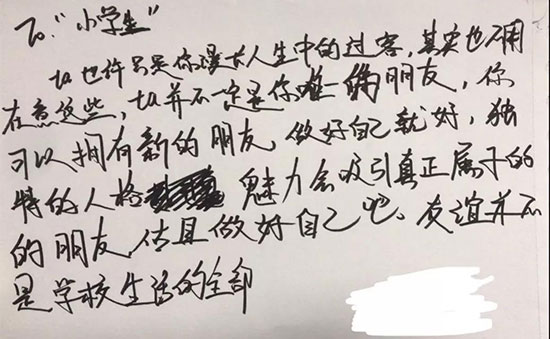 To."小学生"
ta也许只是你漫长人生中的过客,其实也不用
在意这些,ta并不一定是你唯一的朋友,你
可以拥有新的朋友,做好自己就好,独
特的人格魅力会吸引真正属于的
的朋友,估且做好自己吧、友谊并不
是学校生活的全部